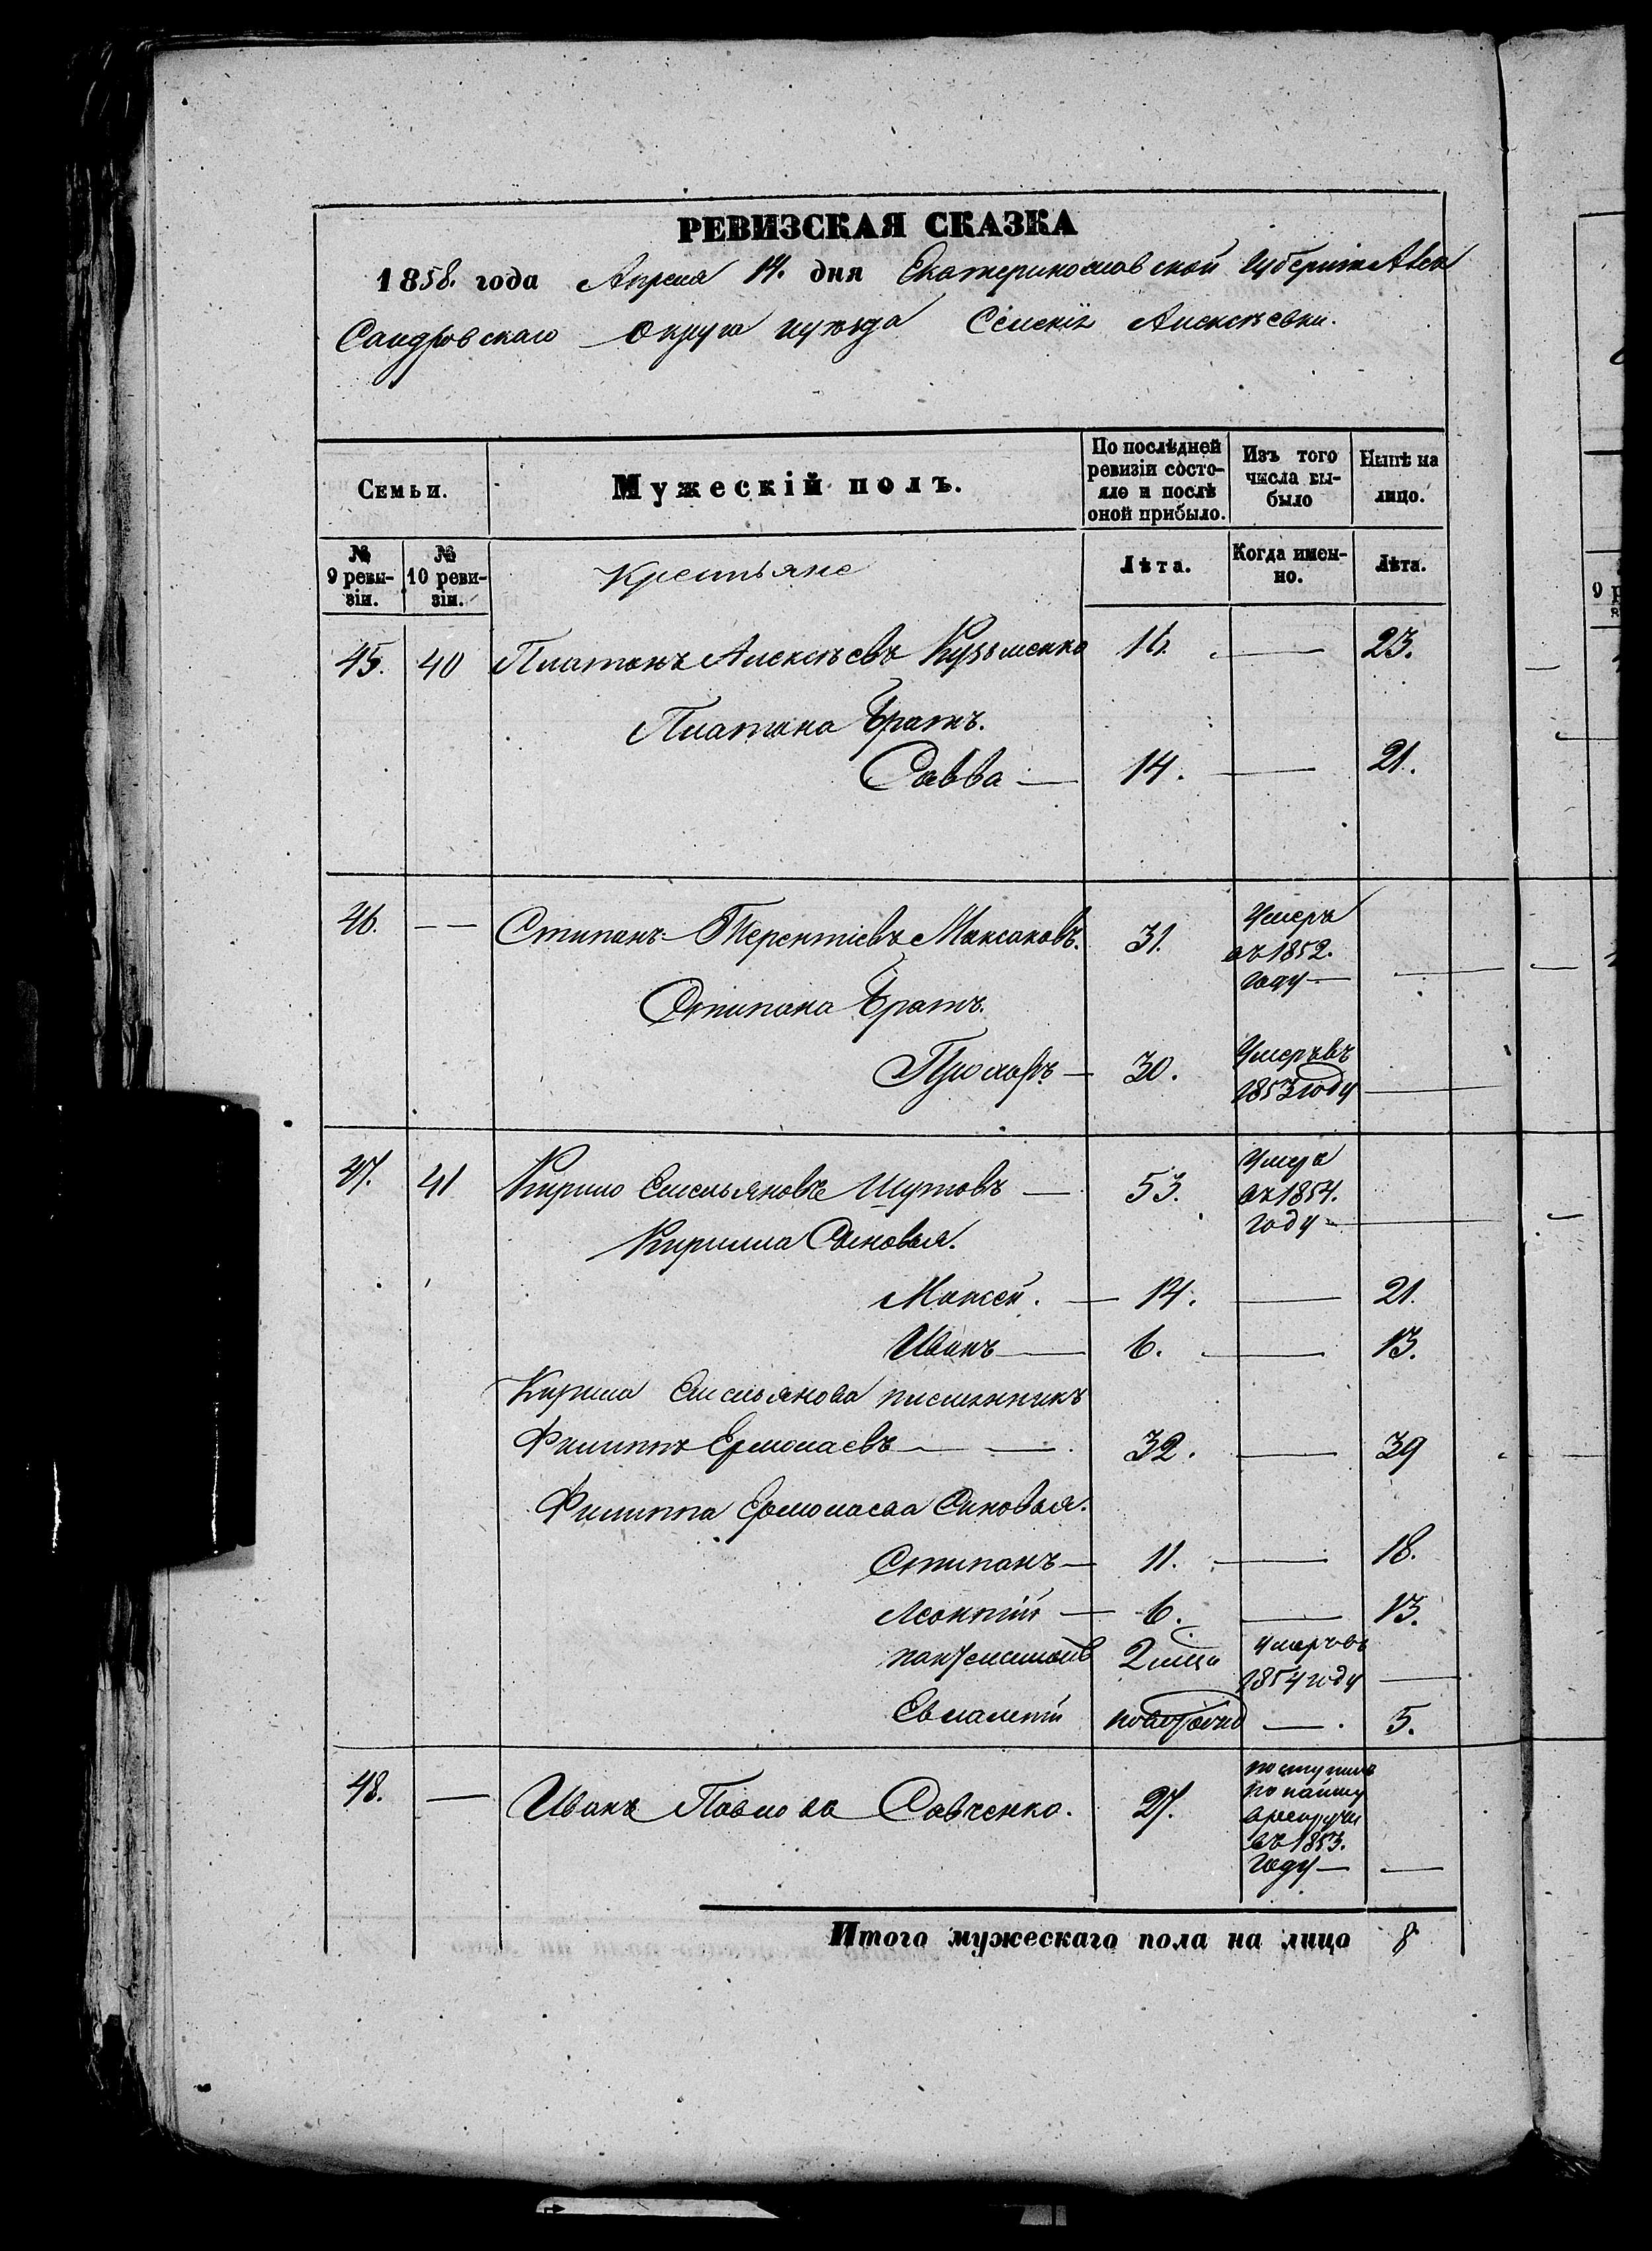 РЕВИЗСКАЯ СКАЗКА
1858. года Апреля 14. дня Екатеринославской Губерніи Алек
Сандровскаго округа и уѣзда Селенія Алексѣевки.
Семьи.
Мужескій полъ.
По послѣдней ревизіи состояло и послѣ оной прибыло.
Изъ того числа выбыло
Нынѣ на лицо.
№ 9 ревизіи.
№ 10 ревизіи.
Крестьяне
Лѣта.
Когда именно.
Лѣта.
45. 40 Платонъ Алексѣевъ Кузьменко 16. — 23.
Платона Братъ.
Савва — 14. — 21.
46. — — Стипанъ Терентіевъ Максаковъ. 31. Умеръ въ 1852. году —
Стипана Братъ.
Прохоръ — 30. Умеръ въ 1853 году —
47. 41 Кирило Емельяновъ Шутовъ — 53. Умеръ въ 1854. году —
Кирилла Сыновья.
Мокей. — 14. — 21.
Иванъ — 6. — 13.
Кирила Емельянова племянникъ
Филиппъ Ермолаевъ — — 32. — 39
Филиппа Ермолаева Сыновья.
Стипанъ — 11. — 18.
Леонтій — 6. — 13.
2 умеръ въ 1854 году —
Евлампій — 5.
48. — Иванъ Павловъ Савченко. 27. поступилъ по найму въ 1853. году — —
Итого мужескаго пола на лицо 8